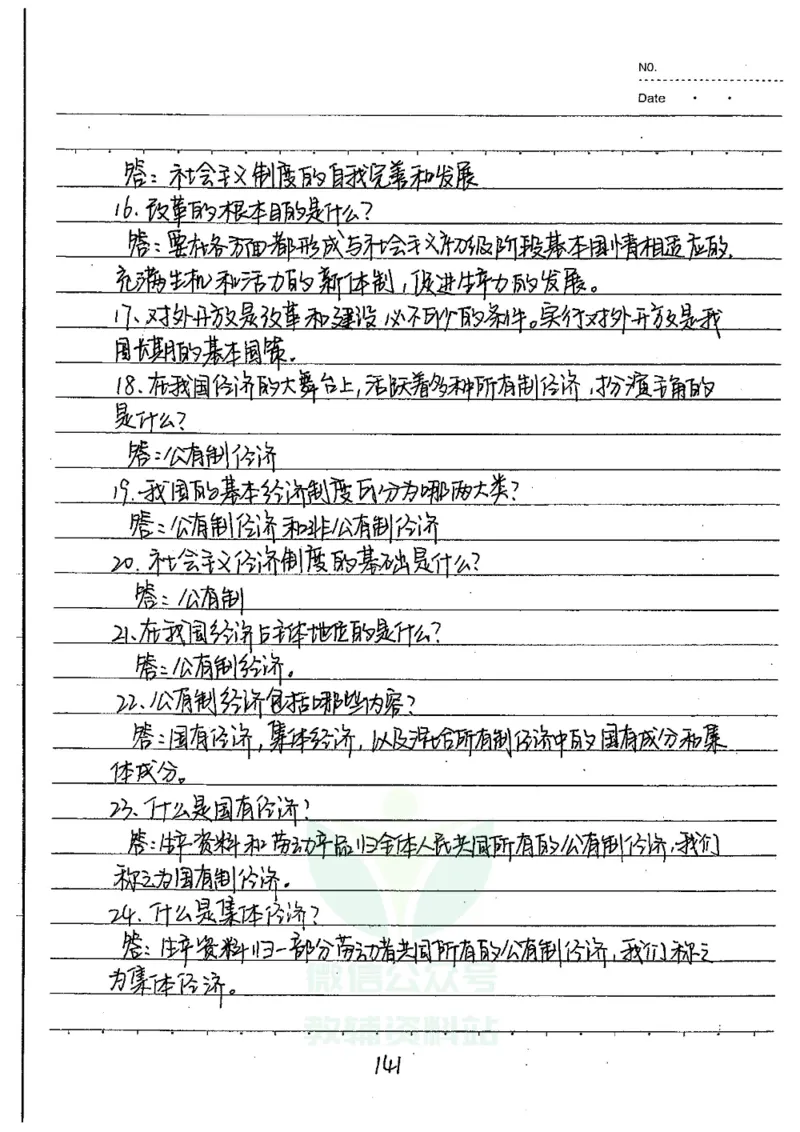 NO.
Date
答：社会主义制度的自我完善和发展
16.改革的根本目的是什么？
答：要在各方面都形成与社会主义初级阶段基本国情相适应的，
充满生机和活力的新体制，促进生产力的发展。
17、对外开放是改革和建设必不可少的条件。实行对外开放是我
国长期的基本国策。
18、在我国经济的大舞台上，活跃着多种所有制经济，扮演主角的
是什么？
答：公有制经济
19.我国的基本经济制度可分为哪两大类？
答：公有制经济和非公有制经济
20.社会主义经济制度的基础是什么？
答：公有制
21.在我国经济占主体地位的是什么？
答：公有制经济。
22、公有制经济包括哪些内容？
答：国有经济，集体经济，以及混合所有制经济中的国有成分和集
体成分。
23、什么是国有经济？
答：生产资料和劳动产品归全体人民共同所有的公有制经济，我们
称之为国有制经济。
24.什么是集体经济？
答：生产资料归一部分劳动者共同所有的公有制经济，我们称之
为集体经济。
微信公众号
教辅资料站
141